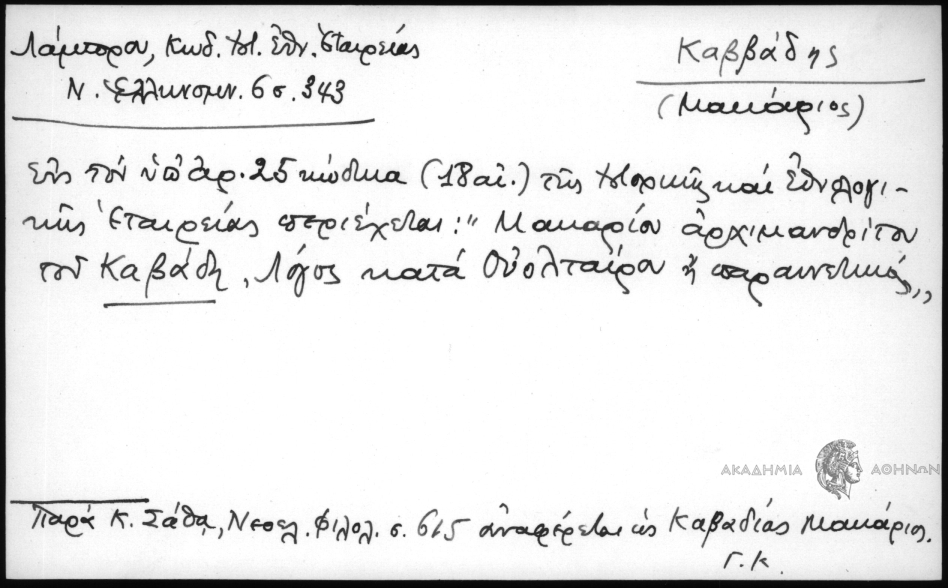 Λάμπρου, Κωδ. Ἱστ. Ἐθν. Ἑταιρείας
Ν. Ἑλληνομν. 6 σ. 343
Καββάδης
(Μακάριος)
Εἰς τὸν ὑπ' ἀρ. 25 κώδικα (18 αἰ.) τῆς Ἱστορικῆς καὶ Ἐθνολογι-
κῆς Ἑταιρείας περιέχεται: "Μακαρίου ἀρχιμανδρίτου
τοῦ Καβάδη, Λόγος κατὰ Οὐολταίρου ἢ παραινετικός,,
ΑΚΑΔΗΜΙΑ ΑΘΗΝΩΝ
Παρὰ Κ. Σάθᾳ, Νεοελ. Φιλολ. σ. 615 ἀναφέρεται ὡς Καβαδίας Μακάριος.
Γ. Κ.